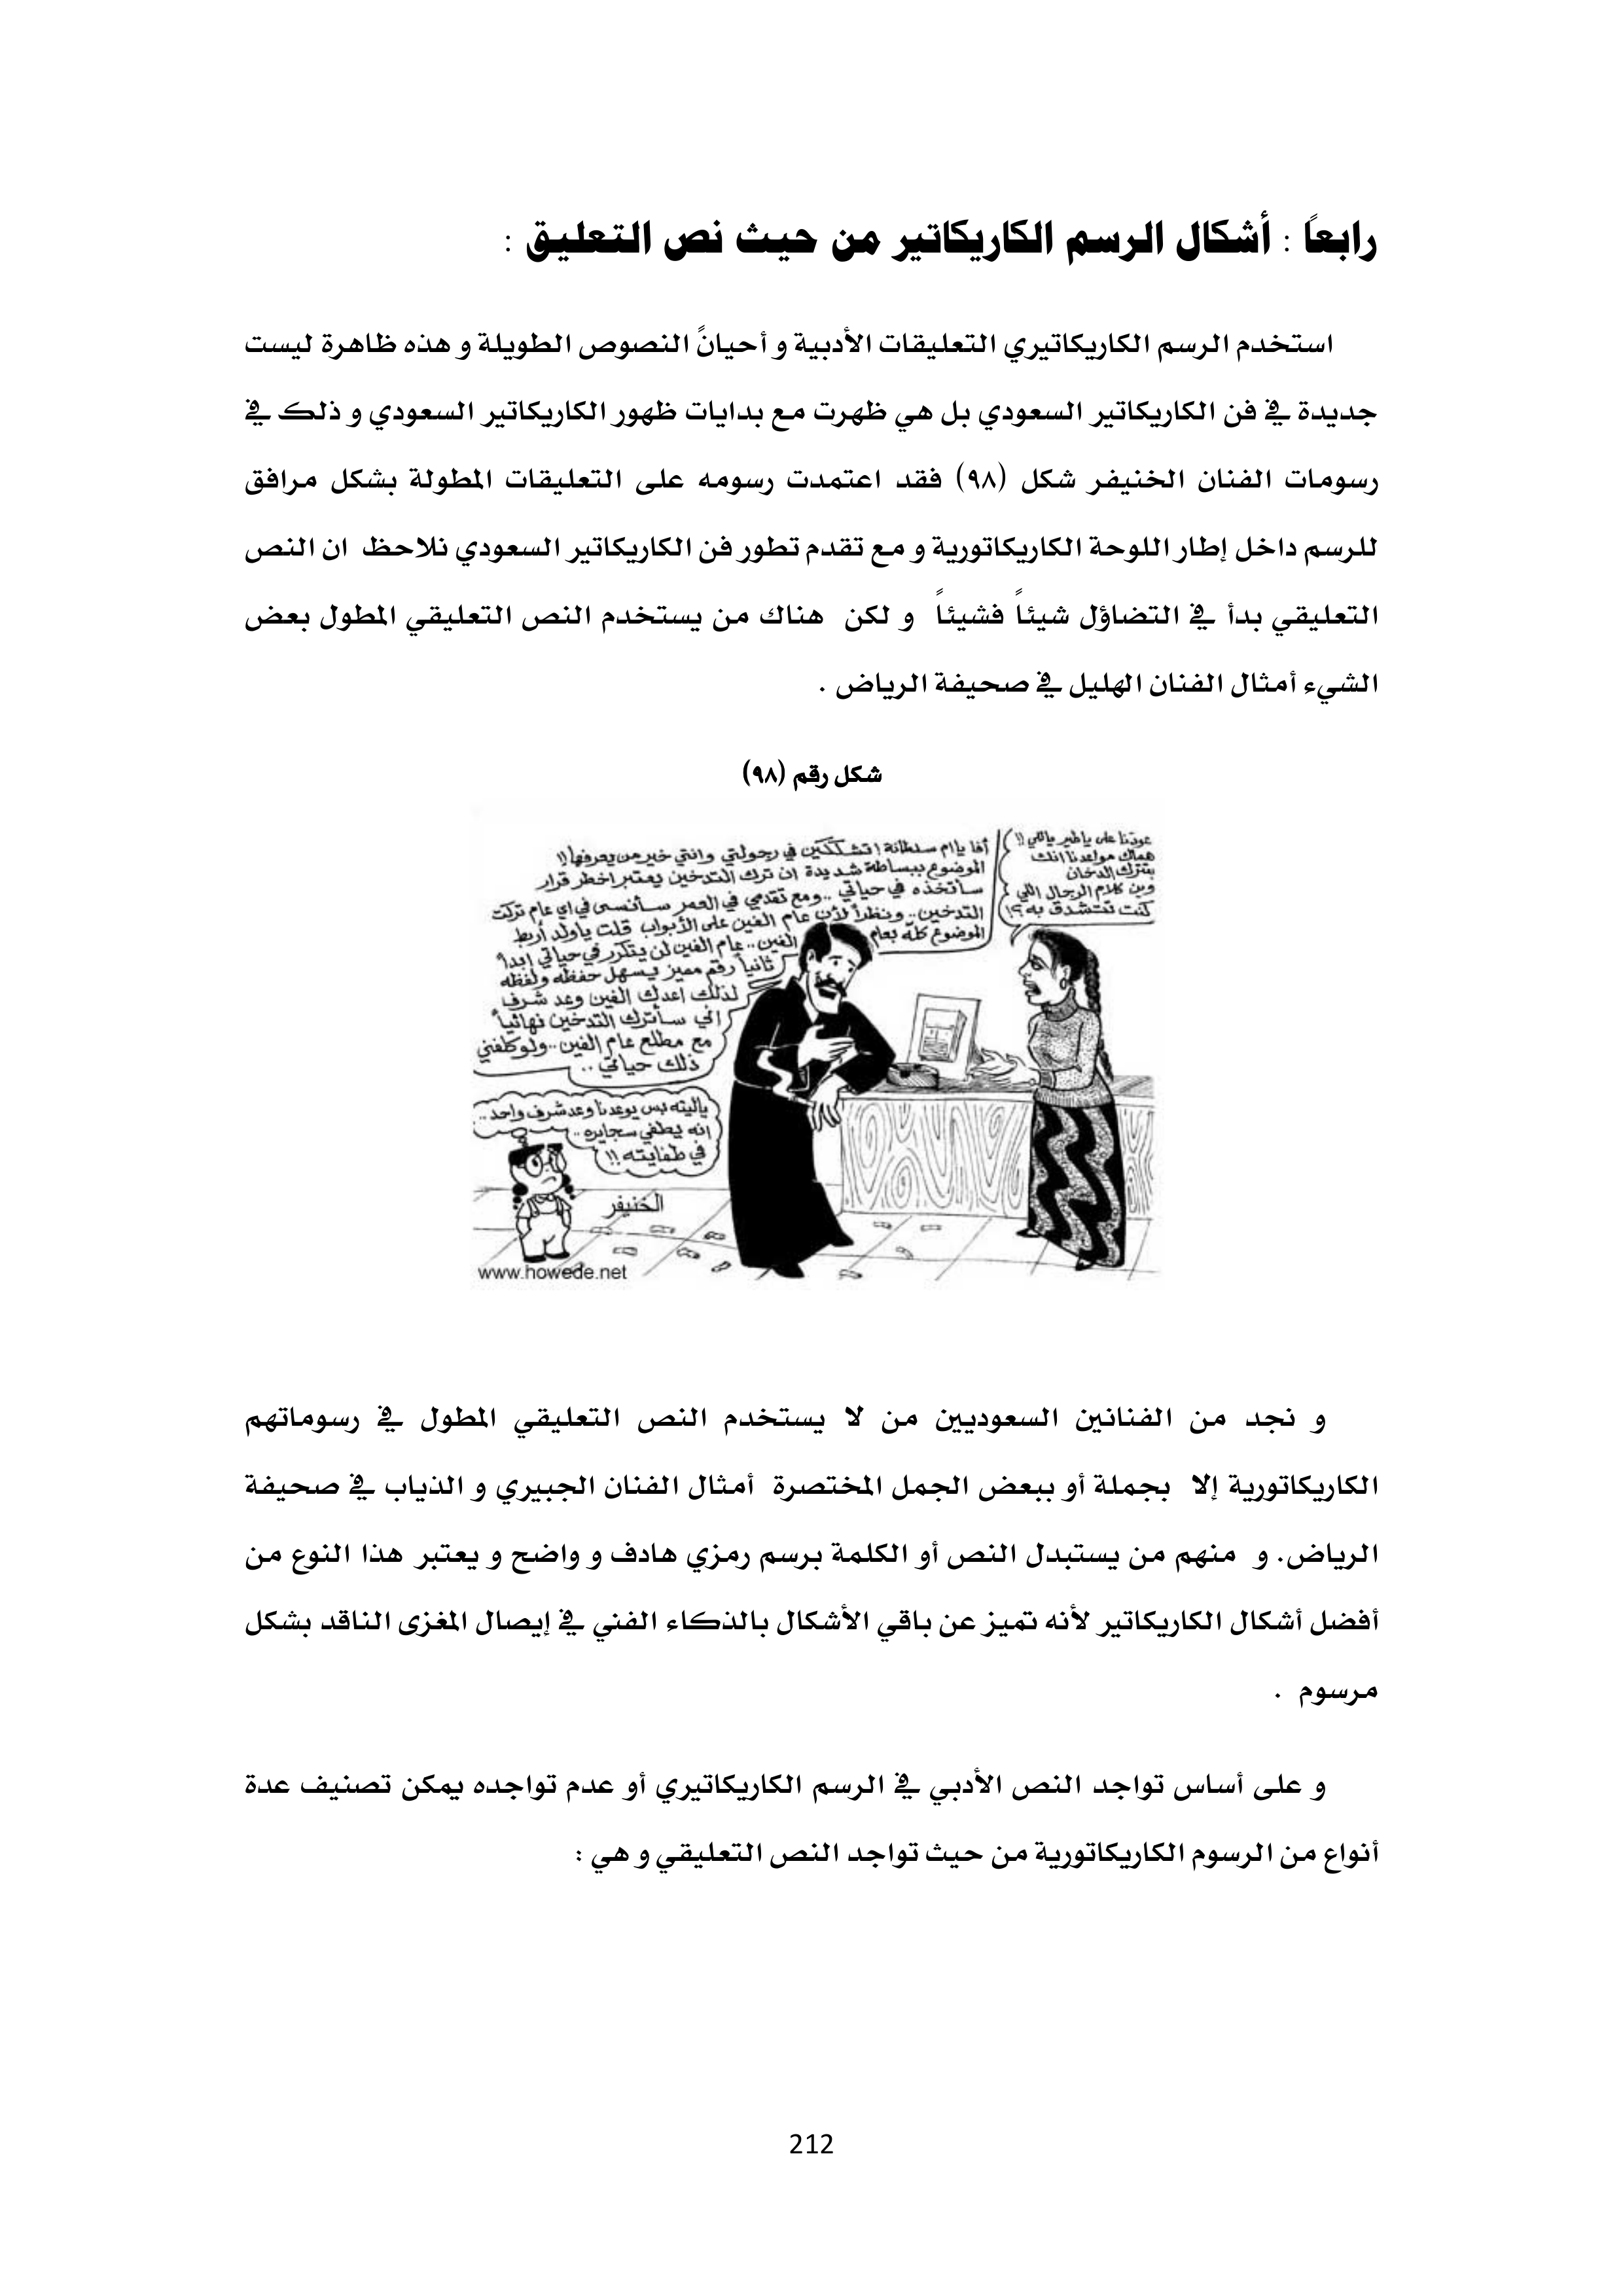 رابعاً : أشكال الرسم الكاريكاتير من حيث نص التعليق :
استخدم الرسم الكاريكاتيري التعليقات الأدبية و أحيانً النصوص الطويلة و هذه ظاهرة ليست
جديدة في فن الكاريكاتير السعودي بل هي ظهرت مع بدايات ظهور الكاريكاتير السعودي و ذلك في
رسومات الفنان الخنيفر شكل (٩٨) فقد اعتمدت رسومه على التعليقات المطولة بشكل مرافق
للرسم داخل إطار اللوحة الكاريكاتورية و مع تقدم تطور فن الكاريكاتير السعودي نلاحظ ان النص
التعليقي بدأ في التضاؤل شيئاً فشيئاً و لكن هناك من يستخدم النص التعليقي المطول بعض
الشيء أمثال الفنان الهليل في صحيفة الرياض .
شكل رقم (٩٨)
عودتنا على ياطير ياللي !!
هماك مواعدنا انك
بتترك الدخان
وين كلام الرجال اللي
كنت تتشدق به ؟!
أفا يا ام سلطانة ! تشككين في رجولتي وانتي خير من يعرفها !!
الموضوع ببساطة شديدة ان ترك التدخين يعتبر اخطر قرار
سأتخذه في حياتي .. ومع تقدمي في العمر سأنسى في اي عام تركت
التدخين .. ونظراً لأن عام الفين على الأبواب قلت ياولد اربط
الموضوع كله بعام الفين .. عام الفين لن يتكرر في حياتي ابدا
ثانياً رقم مميز يسهل حفظه ولفظه
لذلك اعدك الفين وعد شرف
اني سأترك التدخين نهائياً
مع مطلع عام الفين .. ولو كلفني
ذلك حياتي ..
ياليته بس يوعدنا وعد شرف واحد ..
انه يطفي سجايره ..
في طفايته !!
الخنيفر
www.howede.net
و نجد من الفنانين السعوديين من لا يستخدم النص التعليقي المطول في رسوماتهم
الكاريكاتورية إلا بجملة أو ببعض الجمل المختصرة أمثال الفنان الجبيري و الذياب في صحيفة
الرياض. و منهم من يستبدل النص أو الكلمة برسم رمزي هادف و واضح و يعتبر هذا النوع من
أفضل أشكال الكاريكاتير لأنه تميز عن باقي الأشكال بالذكاء الفني في إيصال المغزى الناقد بشكل
مرسوم .
و على أساس تواجد النص الأدبي في الرسم الكاريكاتيري أو عدم تواجده يمكن تصنيف عدة
أنواع من الرسوم الكاريكاتورية من حيث تواجد النص التعليقي و هي :
212